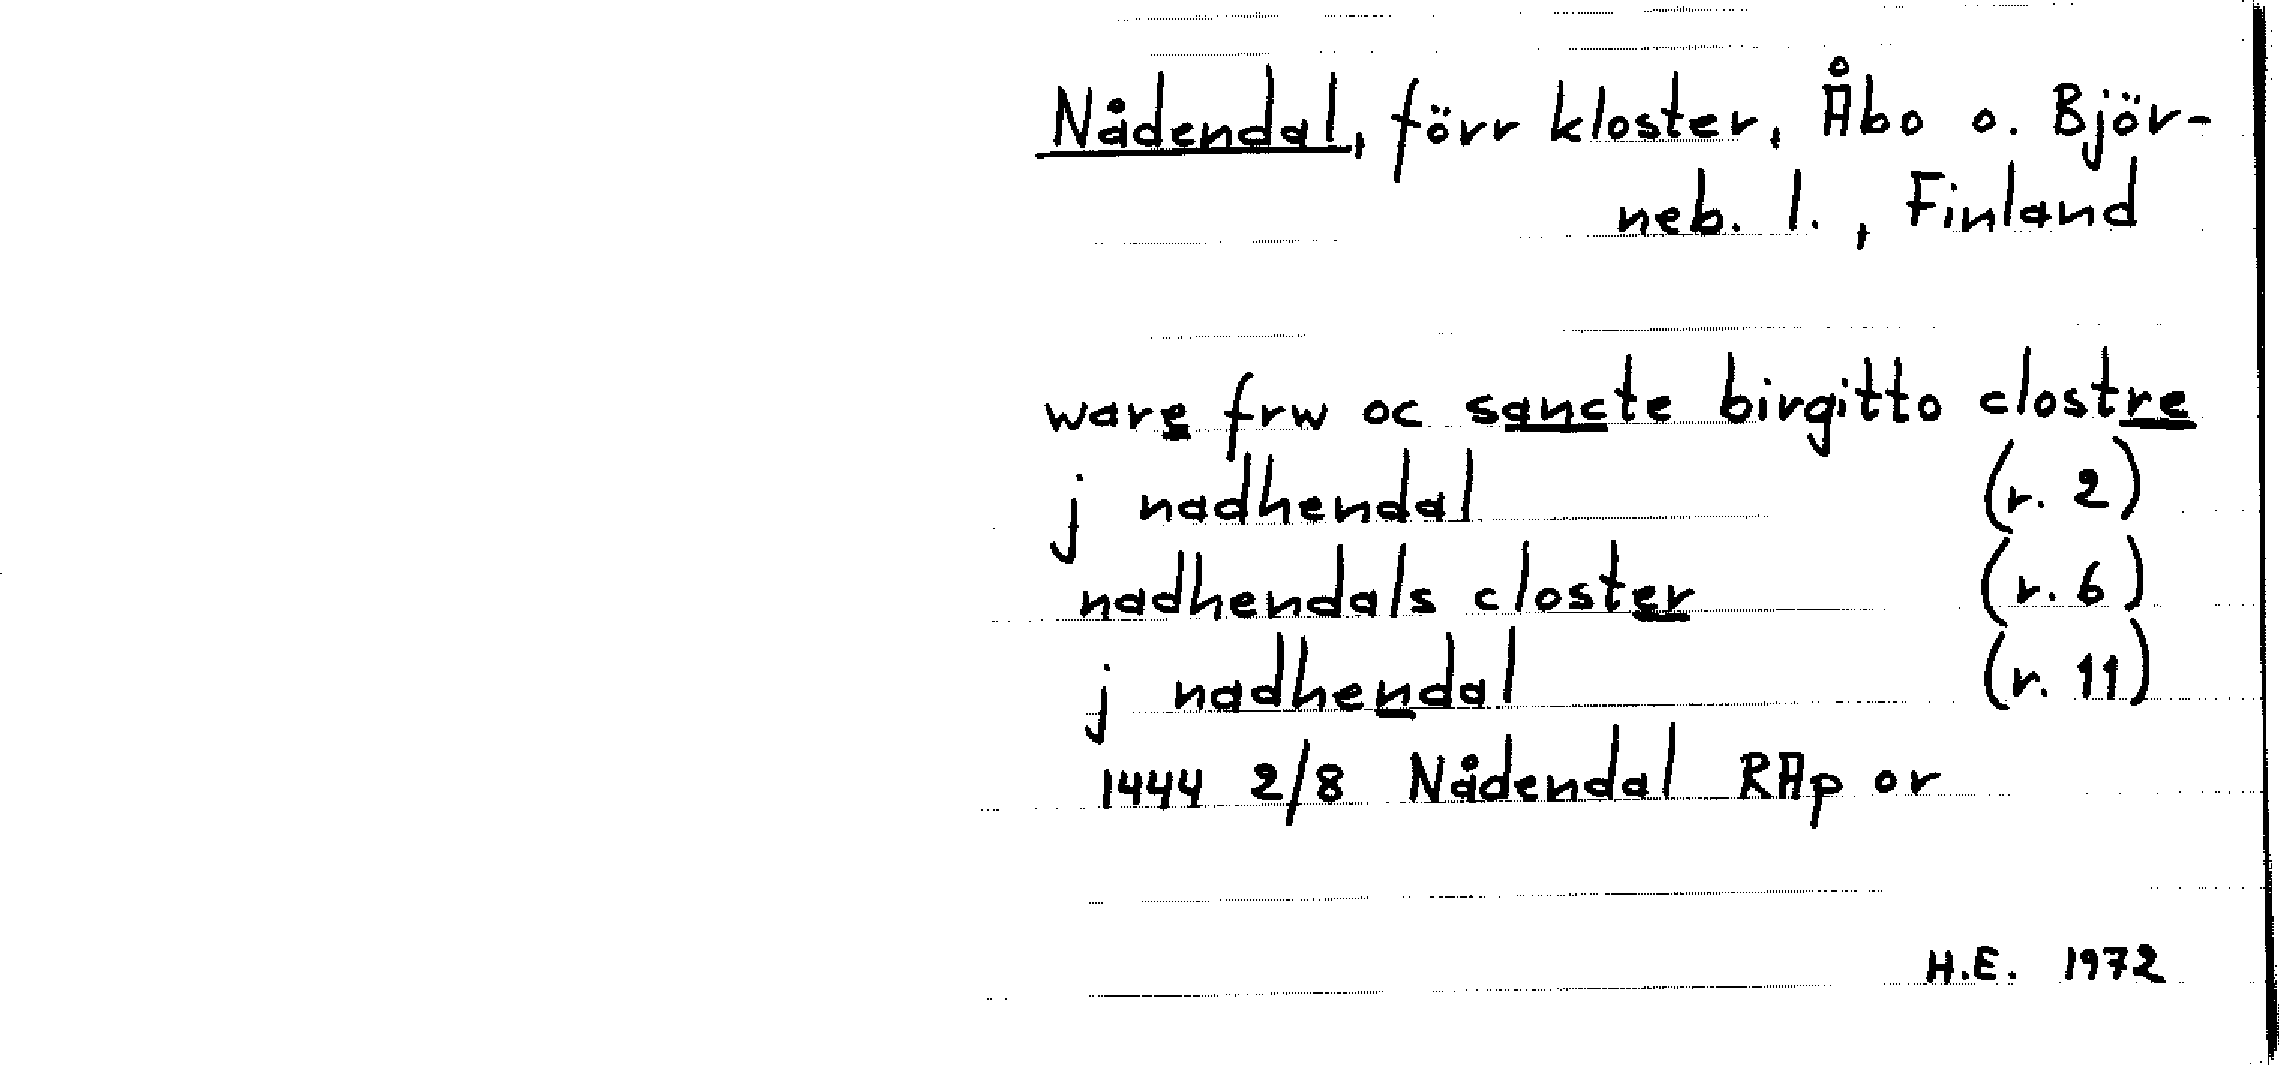 Nådendal, förr kloster, Åbo o. Björ-
neb. l., Finland
ware frw oc sancte birgitto clostre
j nadhendal (r. 2)
nadhendals closter (r. 6)
j nadhendal (r. 11)
1444 2/8 Nådendal RAp or
H.E. 1972